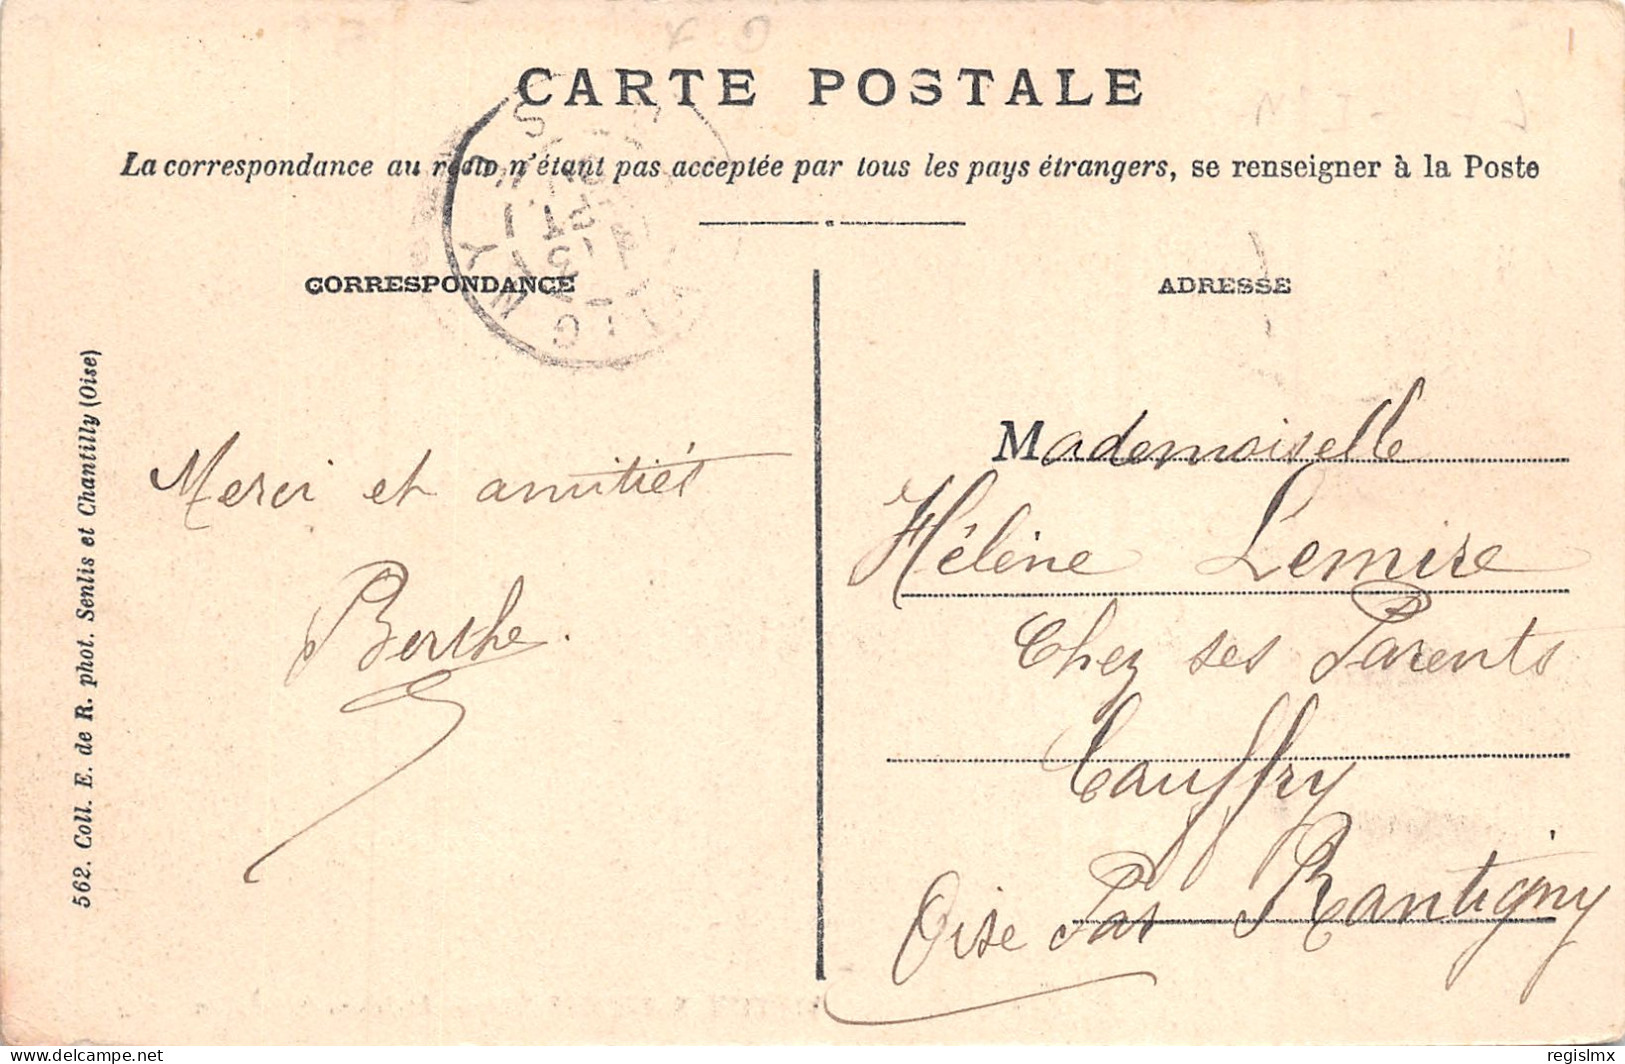 CARTE POSTALE
La correspondance au recto n'étant pas acceptée par tous les pays étrangers, se renseigner à la Poste
CORRESPONDANCE
ADRESSE
562. Coll. E. de R. phot. Senlis et Chantilly (Oise)
Merci et amitiés
Berthe.
Mademoiselle
Hélène Lemire
Chez ses Parents
Cauffry
Oise Par Rantigny
regislmx
www.delcampe.net